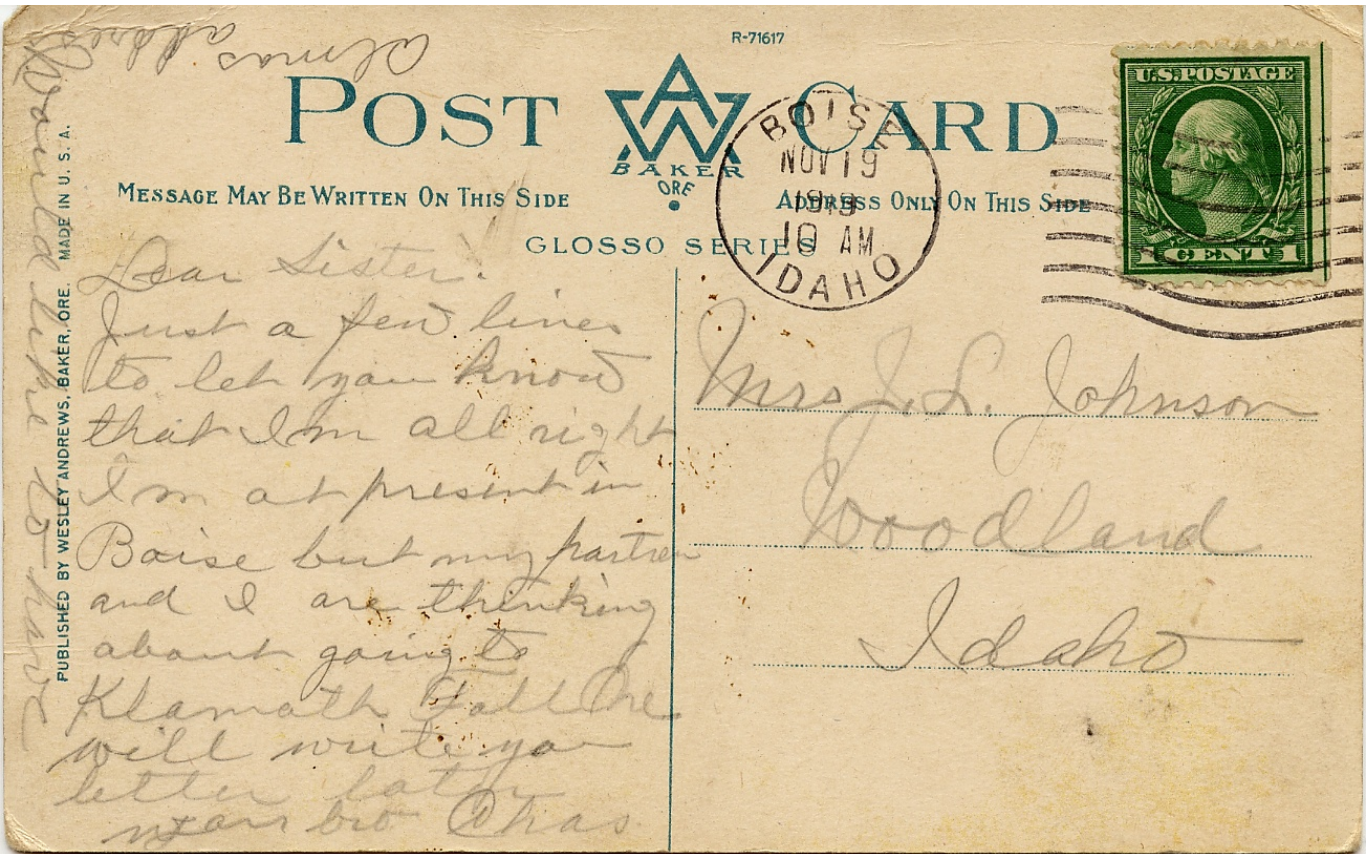 R-71617
POST CARD
AWA
BAKER
ORE
MESSAGE MAY BE WRITTEN ON THIS SIDE
ADDRESS ONLY ON THIS SIDE
GLOSSO SERIES
BOISE
NOV 19
1919
10 AM
IDAHO
U.S. POSTAGE
1 CENT 1
PUBLISHED BY WESLEY ANDREWS, BAKER, ORE. MADE IN U. S. A.
Dear Sister.
Just a few lines
to let you know
that I'm all right
I'm at present in
Boise but my partner
and I are thinking
about going to
Klamath Fall Ore
will write you
letter later
bro Chas
Would like to have
Almas address
Mrs J. L. Johnson
Woodland
Idaho